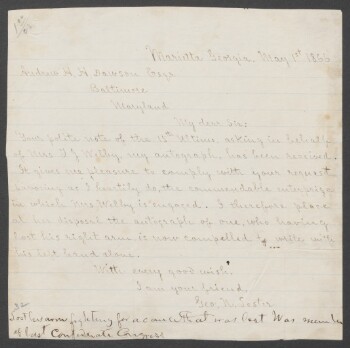 Marietta Georgia, May 1st 1866
Andrew H. H. Dawson Esqr
Baltimore
Maryland
My dear Sir:
Your polite note of the 15th Ultimo, asking in behalf
of Mrs. T. J. Welby my autograph, has been received.
It gives me pleasure to comply with your request
approving as I heartily do, the commendable enterprise
in which Mrs Welby is engaged. I therefore place
at her disposal the autograph of one, who having
lost his right arm is now compelled to write with
his left hand alone.
With every good wish.
I am your friend,
Geo. N. Lester
Lost his arm fighting for a cause that was lost Was member
of last Confederate Congress